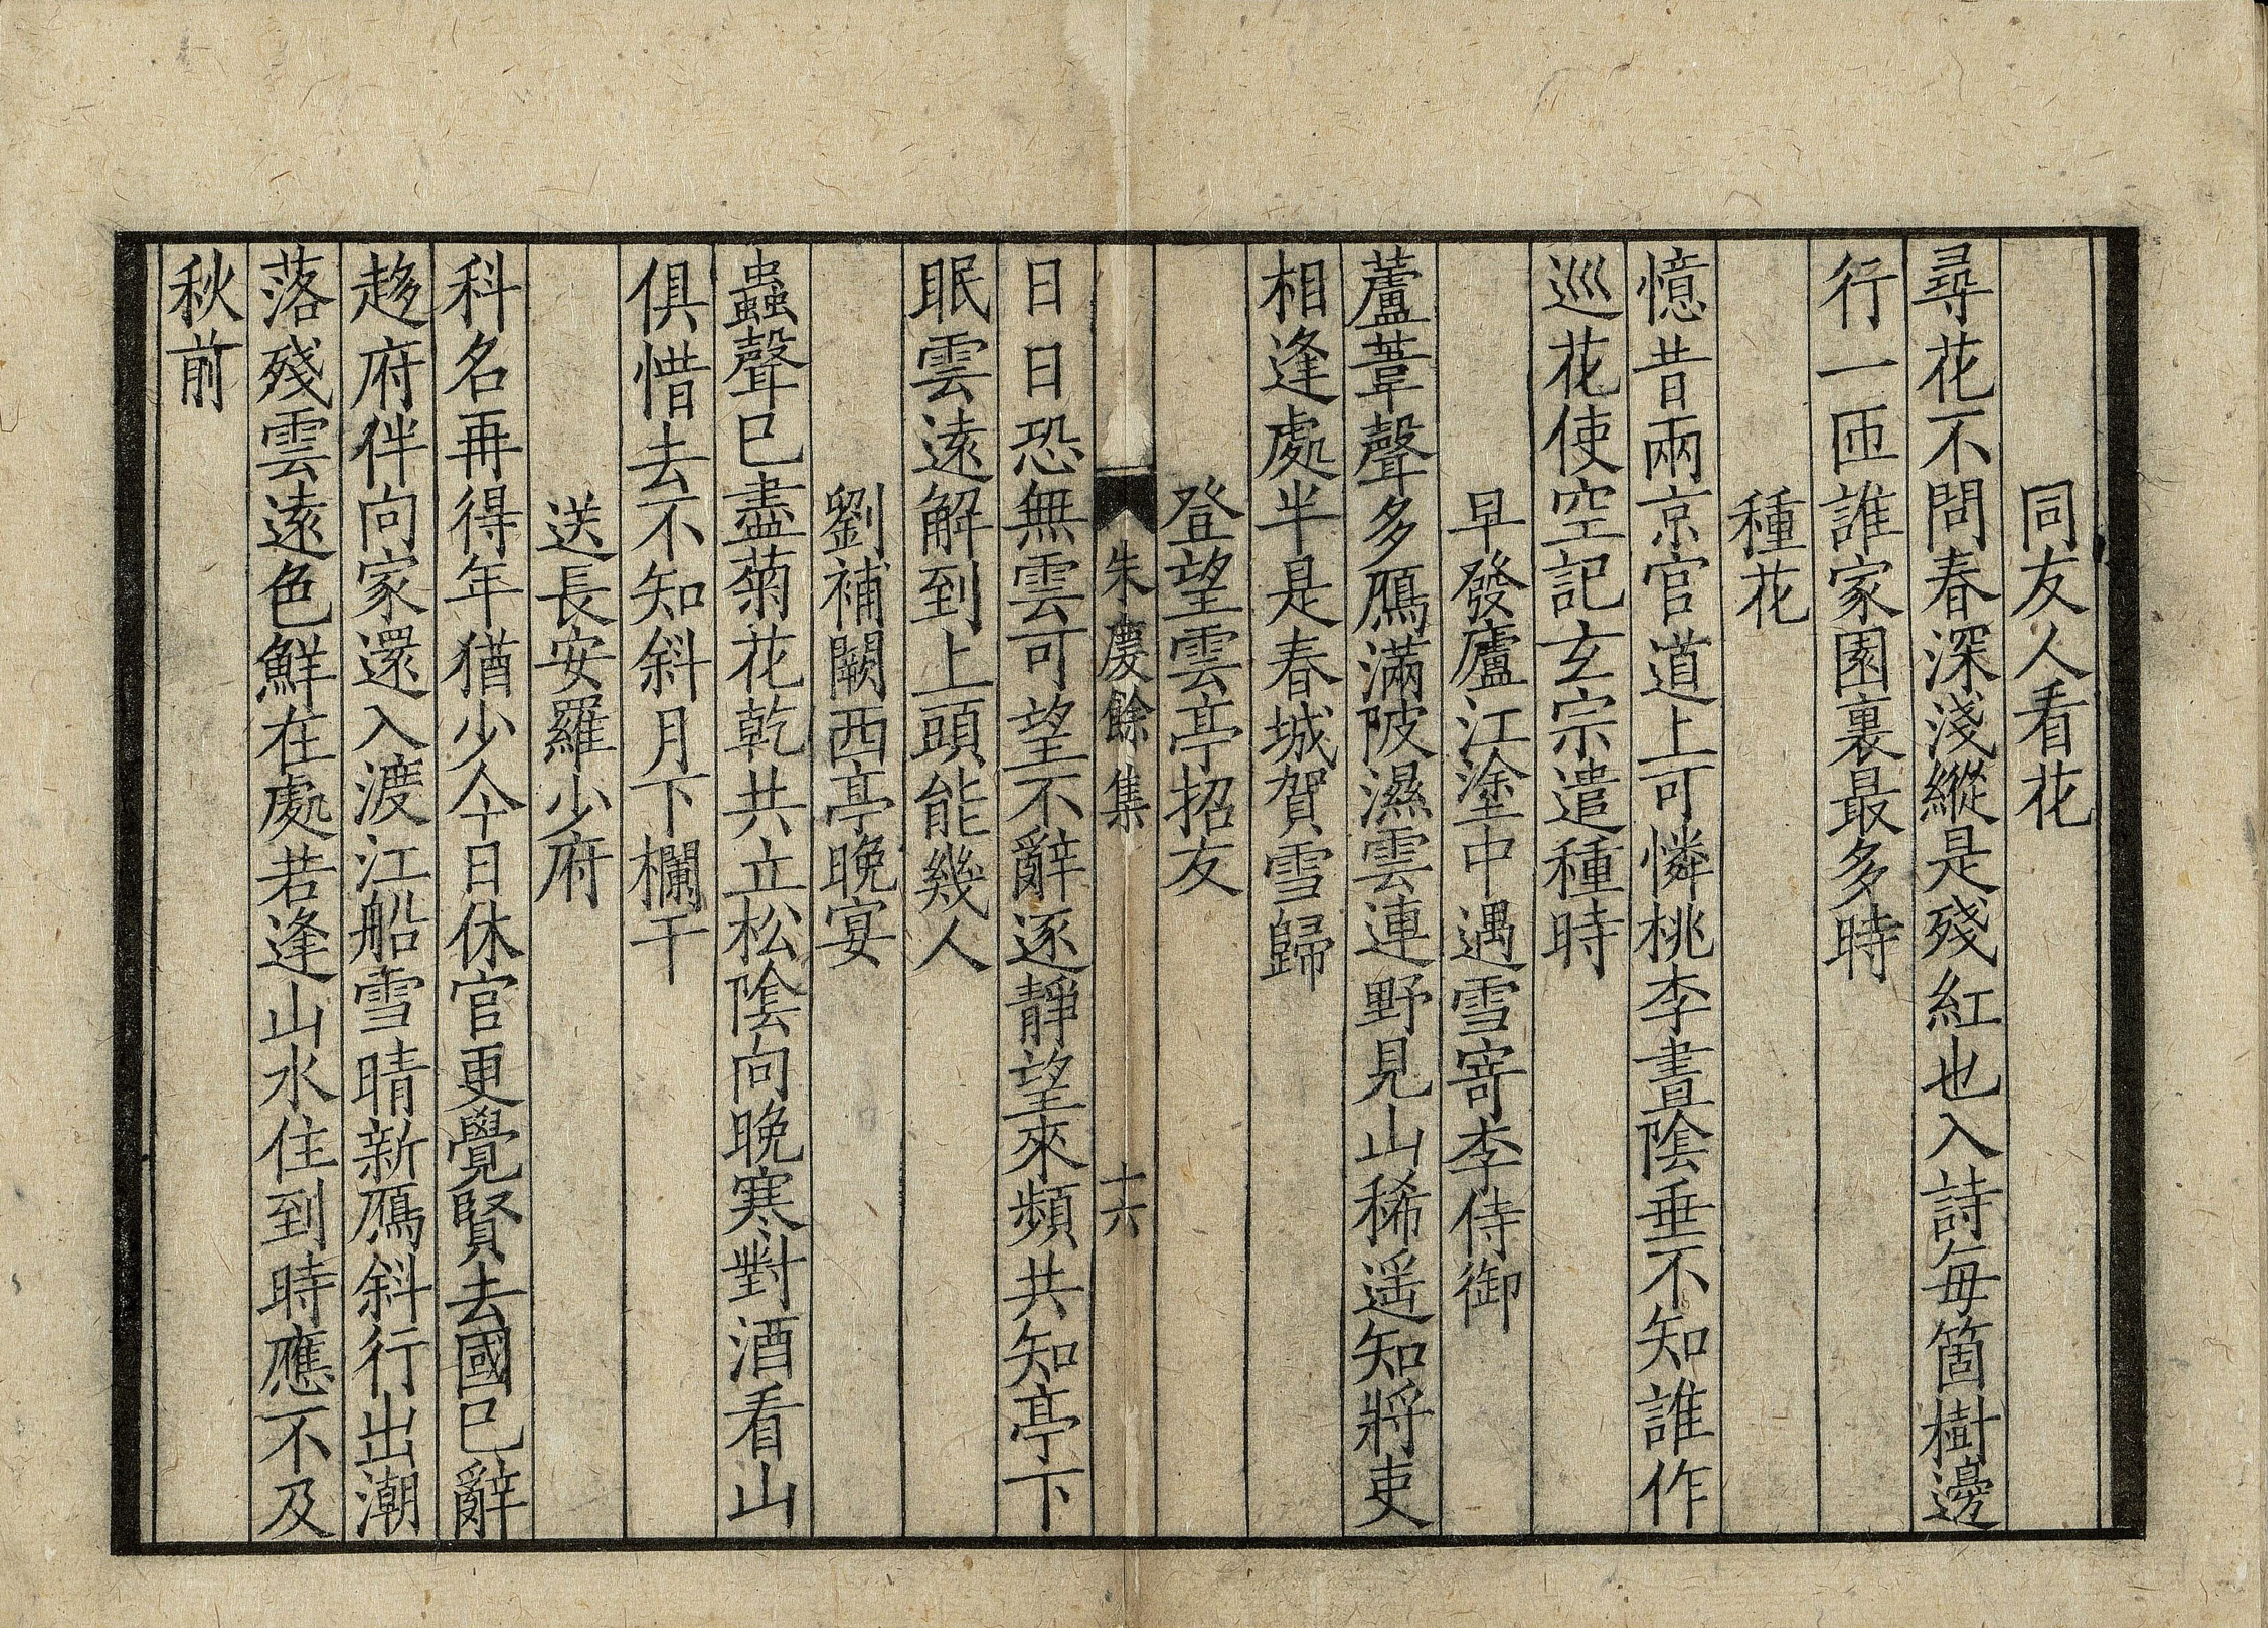 同友人看花
尋花不問春深淺縱是殘紅也入詩每箇樹邊
行一匝誰家園裏最多時
種花
憶昔兩京官道上可憐桃李晝陰垂不知誰作
巡花使空記玄宗遣種時
早發廬江塗中遇雪寄李侍御
蘆葦聲多鴈滿陂濕雲連野見山稀遥知將吏
相逢處半是春城賀雪歸
登望雲亭招友
朱慶餘集 十六
日日恐無雲可望不辭逐靜望來頻共知亭下
眠雲遠解到上頭能幾人
劉補闕西亭晚宴
蟲聲已盡菊花乾共立松陰向晚寒對酒看山
俱惜去不知斜月下欄干
送長安羅少府
科名再得年猶少今日休官更覺賢去國已辭
趍府伴向家還入渡江船雪晴新鴈斜行出潮
落殘雲遠色鮮在處若逢山水住到時應不及
秋前